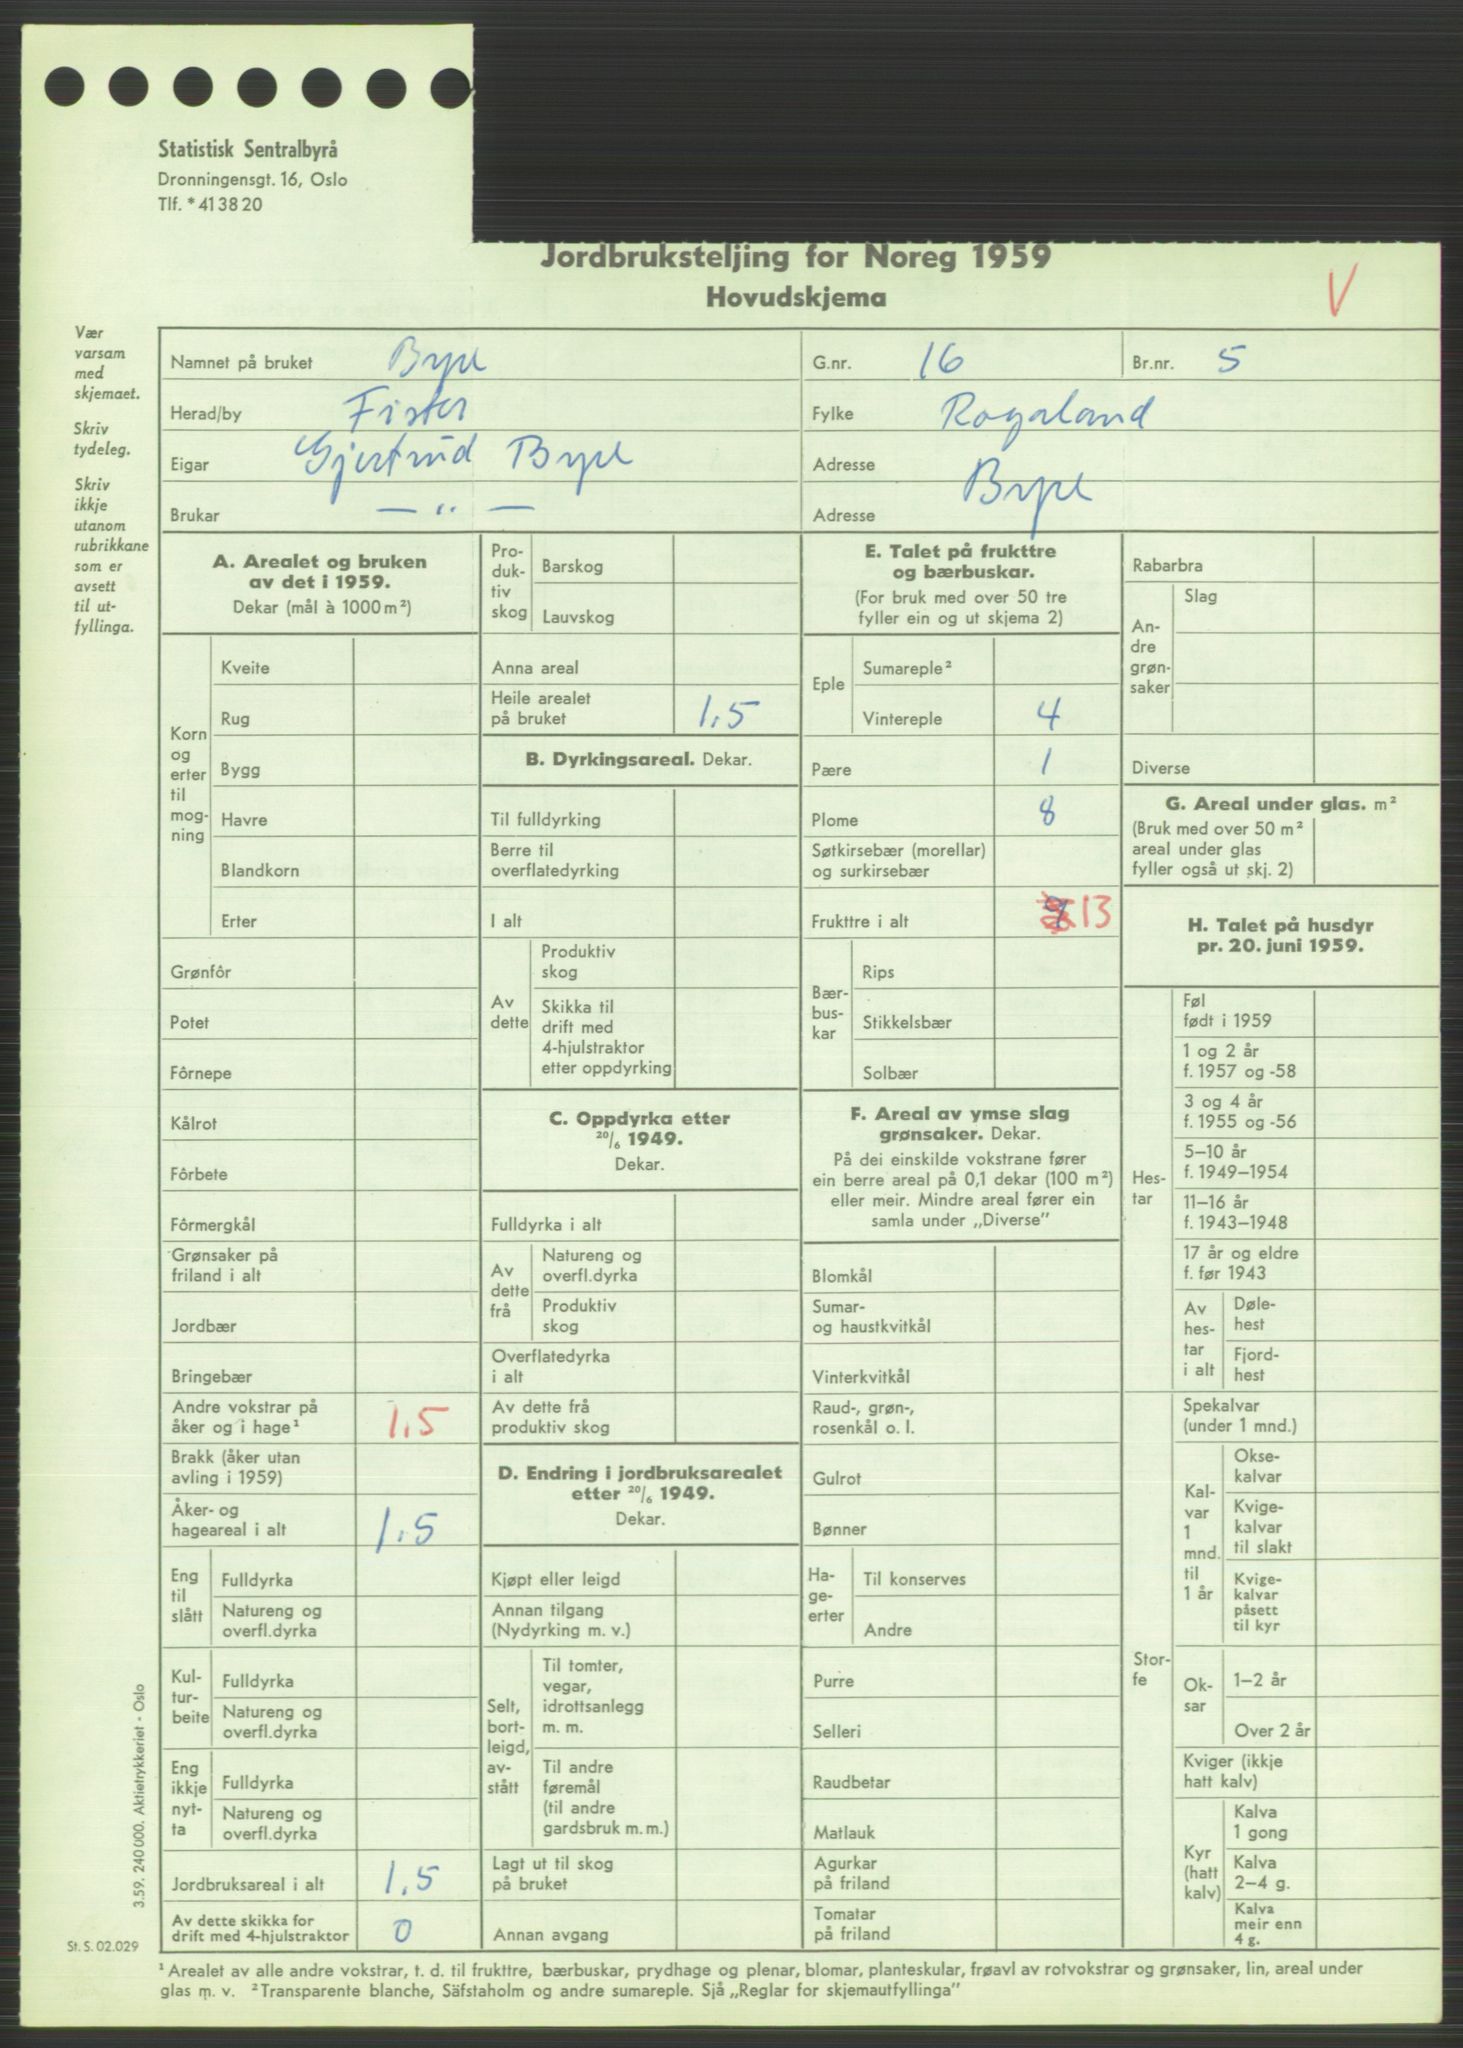 Statistisk Sentralbyrå
Dronningensgt. 16, Oslo
Tlf. * 41 38 20
Jordbruksteljing for Noreg 1959
Hovudskjema
V
Vær
varsam
med
skjemaet.
Skriv
tydeleg.
Skriv
ikkje
utanom
rubrikkane
som er
avsett
til ut-
fyllinga.
Namnet på bruket Brye
G.nr. 16
Br.nr. 5
Herad/by Fister
Fylke Rogaland
Eigar Gjertrud Brye
Adresse Brye
Brukar — " —
Adresse
A. Arealet og bruken
av det i 1959.
Dekar (mål à 1000 m²)
Korn
og
erter
til
mog-
ning
Kveite
Rug
Bygg
Havre
Blandkorn
Erter
Grønfôr
Potet
Fôrnepe
Kålrot
Fôrbete
Fôrmergkål
Grønsaker på
friland i alt
Jordbær
Bringebær
Andre vokstrar på
åker og i hage¹ 1,5
Brakk (åker utan
avling i 1959)
Åker- og
hageareal i alt 1.5
Eng
til
slått
Fulldyrka
Natureng og
overfl.dyrka
Kul-
tur-
beite
Fulldyrka
Natureng og
overfl.dyrka
Eng
ikkje
nyt-
ta
Fulldyrka
Natureng og
overfl.dyrka
Jordbruksareal i alt 1.5
Av dette skikka for
drift med 4-hjulstraktor 0
Pro-
duk-
tiv
skog
Barskog
Lauvskog
Anna areal
Heile arealet
på bruket 1.5
B. Dyrkingsareal. Dekar.
Til fulldyrking
Berre til
overflatedyrking
I alt
Av
dette
Produktiv
skog
Skikka til
drift med
4-hjulstraktor
etter oppdyrking
C. Oppdyrka etter
20/6 1949.
Dekar.
Fulldyrka i alt
Av
dette
frå
Natureng og
overfl.dyrka
Produktiv
skog
Overflatedyrka
i alt
Av dette frå
produktiv skog
D. Endring i jordbruksarealet
etter 20/6 1949.
Dekar.
Kjøpt eller leigd
Annan tilgang
(Nydyrking m. v.)
Selt,
bort-
leigd,
av-
stått
Til tomter,
vegar,
idrottsanlegg
m. m.
Til andre
føremål
(til andre
gardsbruk m. m.)
Lagt ut til skog
på bruket
Annan avgang
E. Talet på frukttre
og bærbuskar.
(For bruk med over 50 tre
fyller ein og ut skjema 2)
Eple
Sumareple²
Vintereple 4
Pære 1
Plome 8
Søtkirsebær (morellar)
og surkirsebær
Frukttre i alt 13
Bær-
bus-
kar
Rips
Stikkelsbær
Solbær
F. Areal av ymse slag
grønsaker. Dekar.
På dei einskilde vokstrane fører
ein berre areal på 0,1 dekar (100 m²)
eller meir. Mindre areal fører ein
samla under „Diverse"
Blomkål
Sumar-
og haustkvitkål
Vinterkvitkål
Raud-, grøn-,
rosenkål o. l.
Gulrot
Bønner
Ha-
ge-
erter
Til konserves
Andre
Purre
Selleri
Raudbetar
Matlauk
Agurkar
på friland
Tomatar
på friland
Rabarbra
An-
dre
grøn-
saker
Slag
Diverse
G. Areal under glas. m²
(Bruk med over 50 m²
areal under glas
fyller også ut skj. 2)
H. Talet på husdyr
pr. 20. juni 1959.
Hes-
tar
Føl
født i 1959
1 og 2 år
f. 1957 og -58
3 og 4 år
f. 1955 og -56
5–10 år
f. 1949–1954
11–16 år
f. 1943–1948
17 år og eldre
f. før 1943
Av
hes-
tar
i alt
Døle-
hest
Fjord-
hest
Stor-
fe
Spekalvar
(under 1 mnd.)
Kal-
var
1
mnd.
til
1 år
Okse-
kalvar
Kvige-
kalvar
til slakt
Kvige-
kalvar
påsett
til kyr
Ok-
sar
1–2 år
Over 2 år
Kviger (ikkje
hatt kalv)
Kyr
(hatt
kalv)
Kalva
1 gong
Kalva
2–4 g.
Kalva
meir enn
4 g.
3.59. 240 000. Aktietrykkeriet - Oslo
St. S. 02.029
¹ Arealet av alle andre vokstrar, t. d. til frukttre, bærbuskar, prydhage og plenar, blomar, planteskular, frøavl av rotvokstrar og grønsaker, lin, areal under
glas m. v. ² Transparente blanche, Säfstaholm og andre sumareple. Sjå „Reglar for skjemautfyllinga"